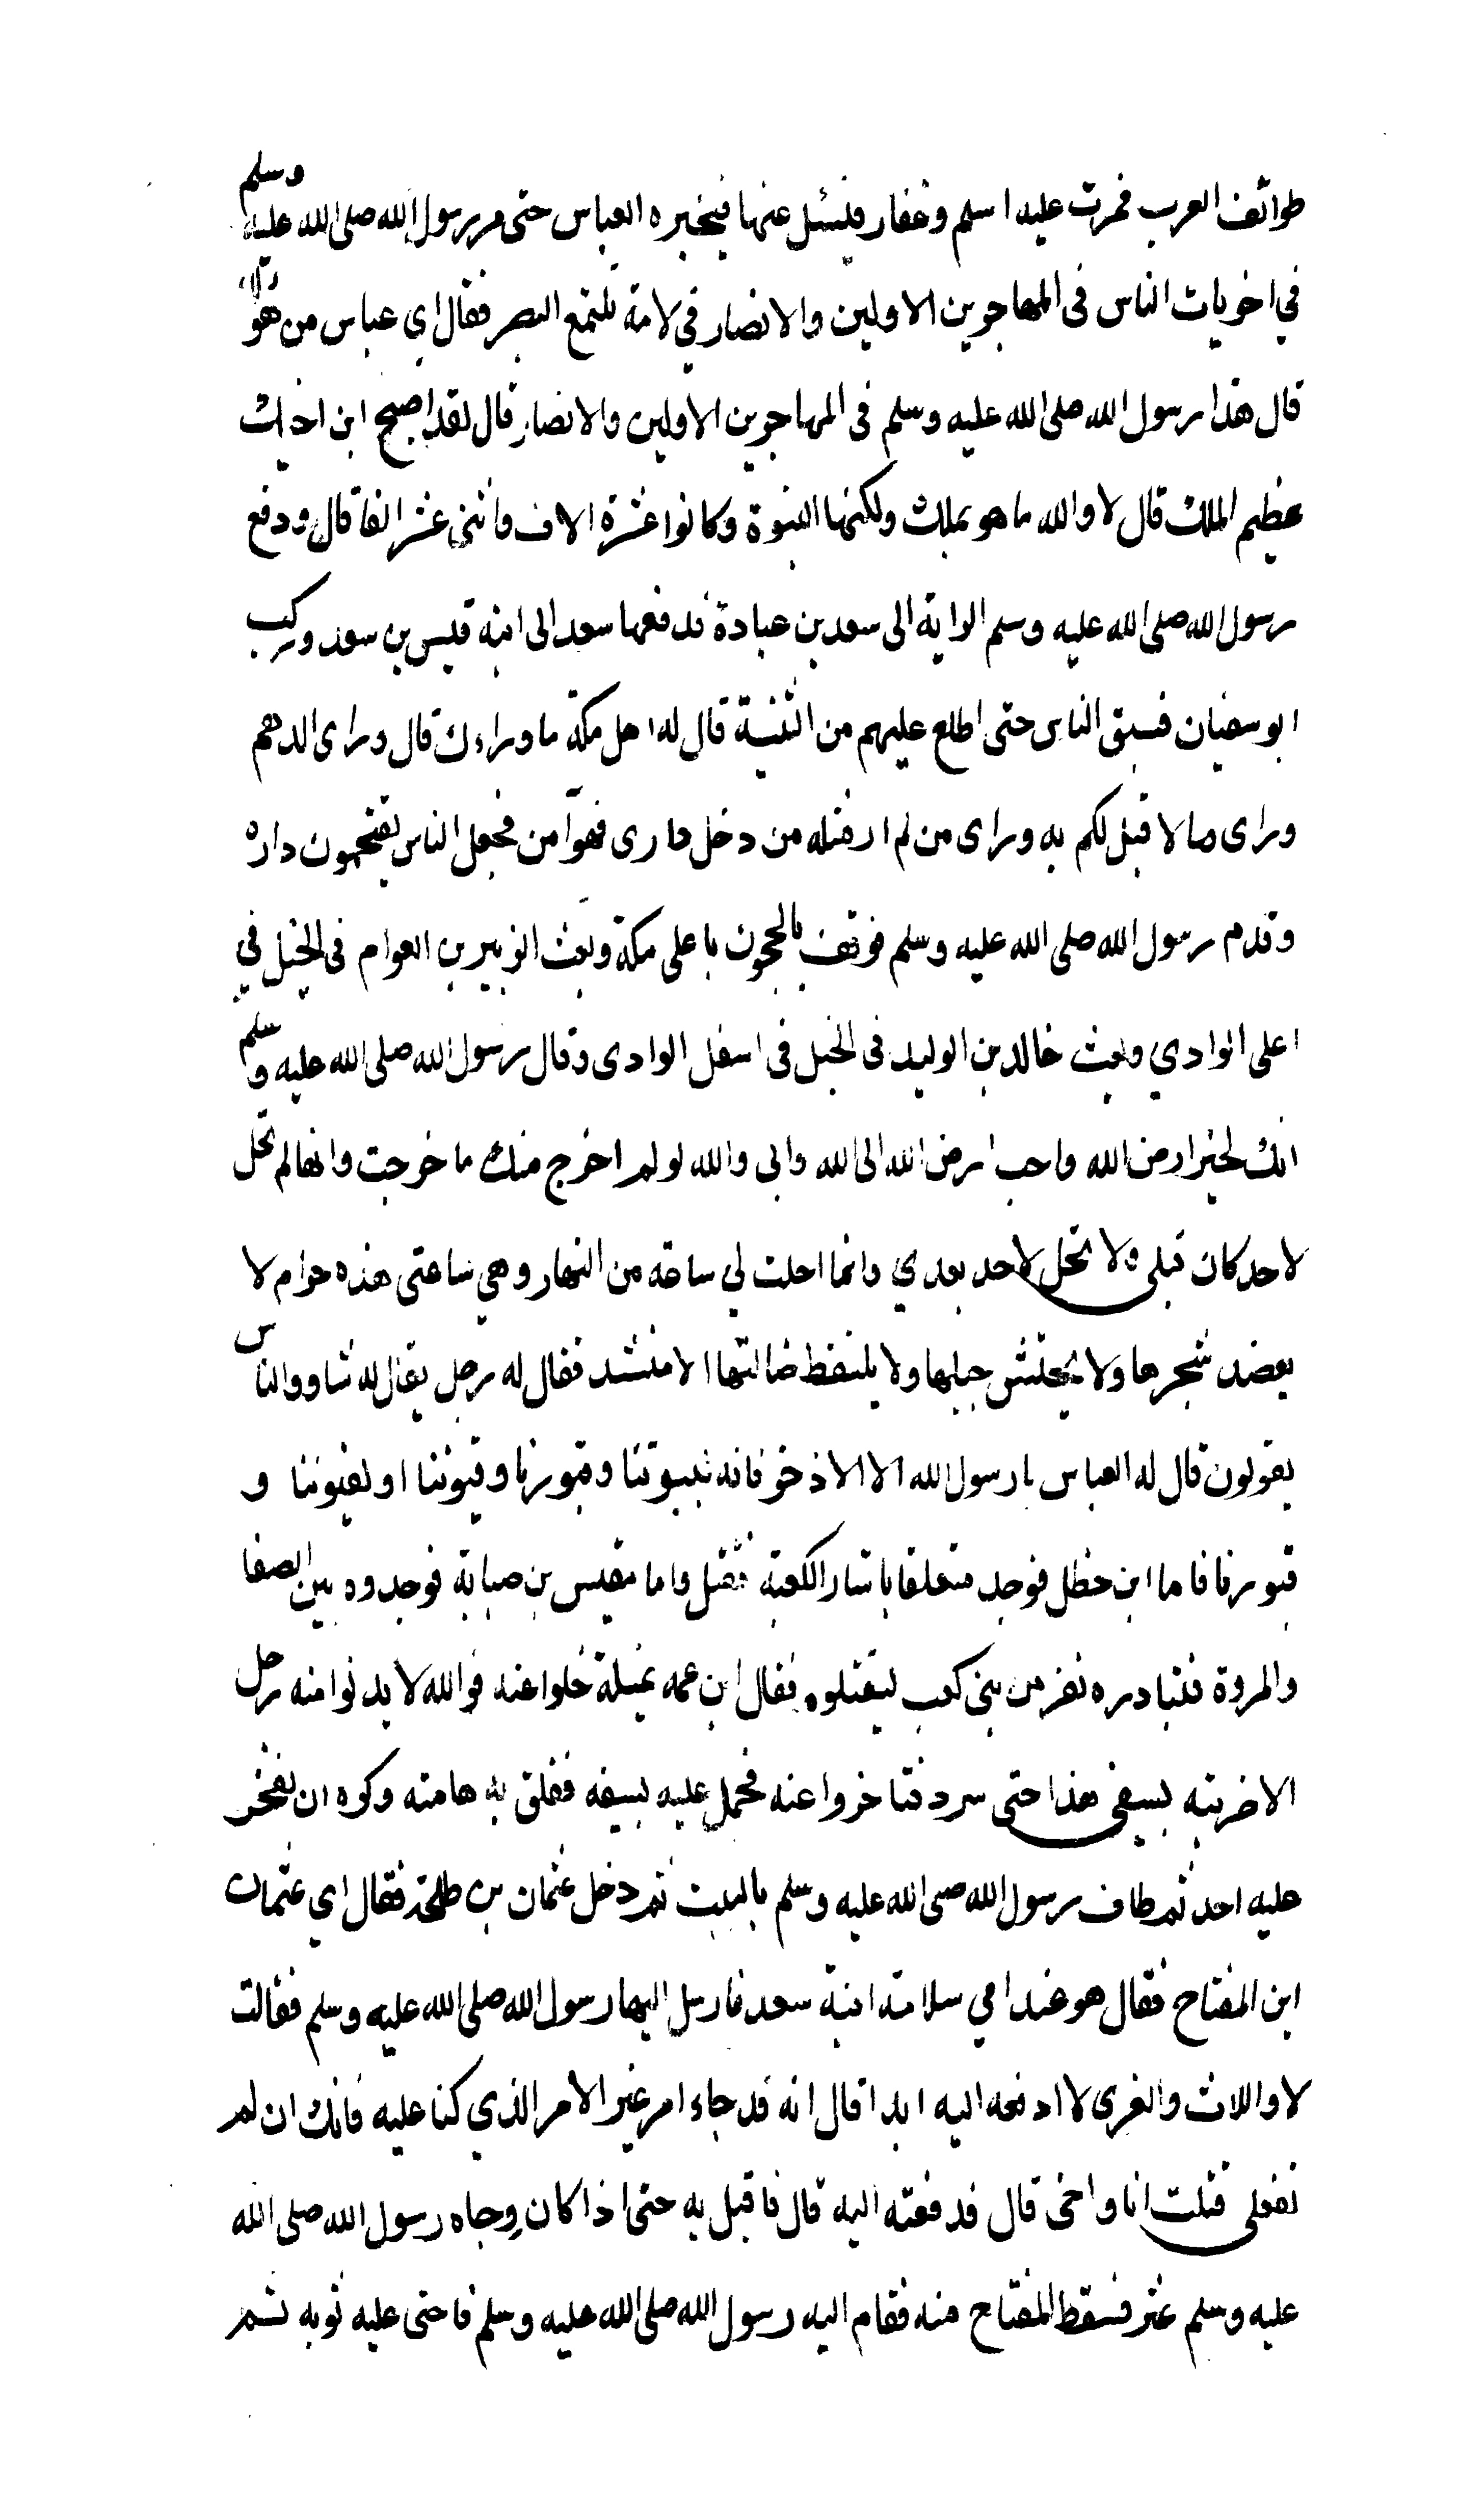 طوائف العرب فمرت عليه اسلم وغفار فيسئل عنها فيخبره العباس حتى مر رسول الله صلى الله عليه وسلم
في اخريات الناس فى المهاجرين الاولين والانصار في لامة تلتمع البصر فقال اي عباس من هؤلاء
قال هذا رسول الله صلى الله عليه وسلم فى المهاجرين الاولين والانصار قال لقد اصبح ابن اخيك
عظيم الملك قال لا والله ما هو بملك ولكنها النبوة وكانوا عشرة الاف واثنى عشر الفا قال ودفع
رسول الله صلى الله عليه وسلم الراية الى سعد بن عبادة فدفعها سعد الى ابنه قيس بن سعد وركب
ابو سفيان فسبق الناس حتى اطلع عليهم من الثنية قال له اهل مكة ما وراءك قال وراى الدهم
وراى ما لا قبل لكم به وراى من لم ار مثله من دخل دارى فهو آمن فجعل الناس يقتحمون داره
وقدم رسول الله صلى الله عليه وسلم فوقف بالحجون باعلى مكة وبعث الزبير بن العوام فى الخيل في
اعلى الوادي وبعث خالد بن الوليد فى الخيل فى اسفل الوادى وقال رسول الله صلى الله عليه وسلم
انك لخير ارض الله واحب ارض الله الى الله وانى والله لو لم اخرج منك ما خرجت وانها لم تحل
لاحد كان قبلى ولا تحل لاحد بعدي وانما احلت لي ساعة من النهار وهي ساعتى هذه حرام لا
يعضد شجرها ولا يحتش حبلها ولا يلتقط ضالتها الا منشد فقال له رجل يقال له شاه والناس
يقولون قال له العباس يا رسول الله الا الاذخر فانه لبيوتنا وقبورنا وقيوننا او لقيوننا و
قبورنا فاما ابن خطل فوجد متعلقا باستار الكعبة فقتل واما مقيس بن صبابة فوجدوه بين الصفا
والمروة فتبادره نفر من بنى كعب ليقتلوه فقال ابن عمه نميلة خلوا عنه فوالله لا يدنوا منه رجل
الا ضربته بسيفى هذا حتى يبرد فتاخروا عنه فحمل عليه بسيفه ففلق به هامته وكره ان يفخر
عليه احد ثم طاف رسول الله صلى الله عليه وسلم بالبيت ثم دخل عثمان بن طلحة فقال اي عثمان
اين المفتاح فقال هو عند امي سلامة ابنة سعد فارسل اليها رسول الله صلى الله عليه وسلم فقالت
لا واللات والعزى لا ادفعه اليه ابدا قال انه قد جاء امر غير الامر الذي كنا عليه فانك ان لم
تفعلى قتلت انا واخى قال فدفعته اليه قال فاقبل به حتى اذا كان وجاه رسول الله صلى الله
عليه وسلم عثر فسقط المفتاح منه فقام اليه رسول الله صلى الله عليه وسلم فاحنى عليه ثوبه ثم